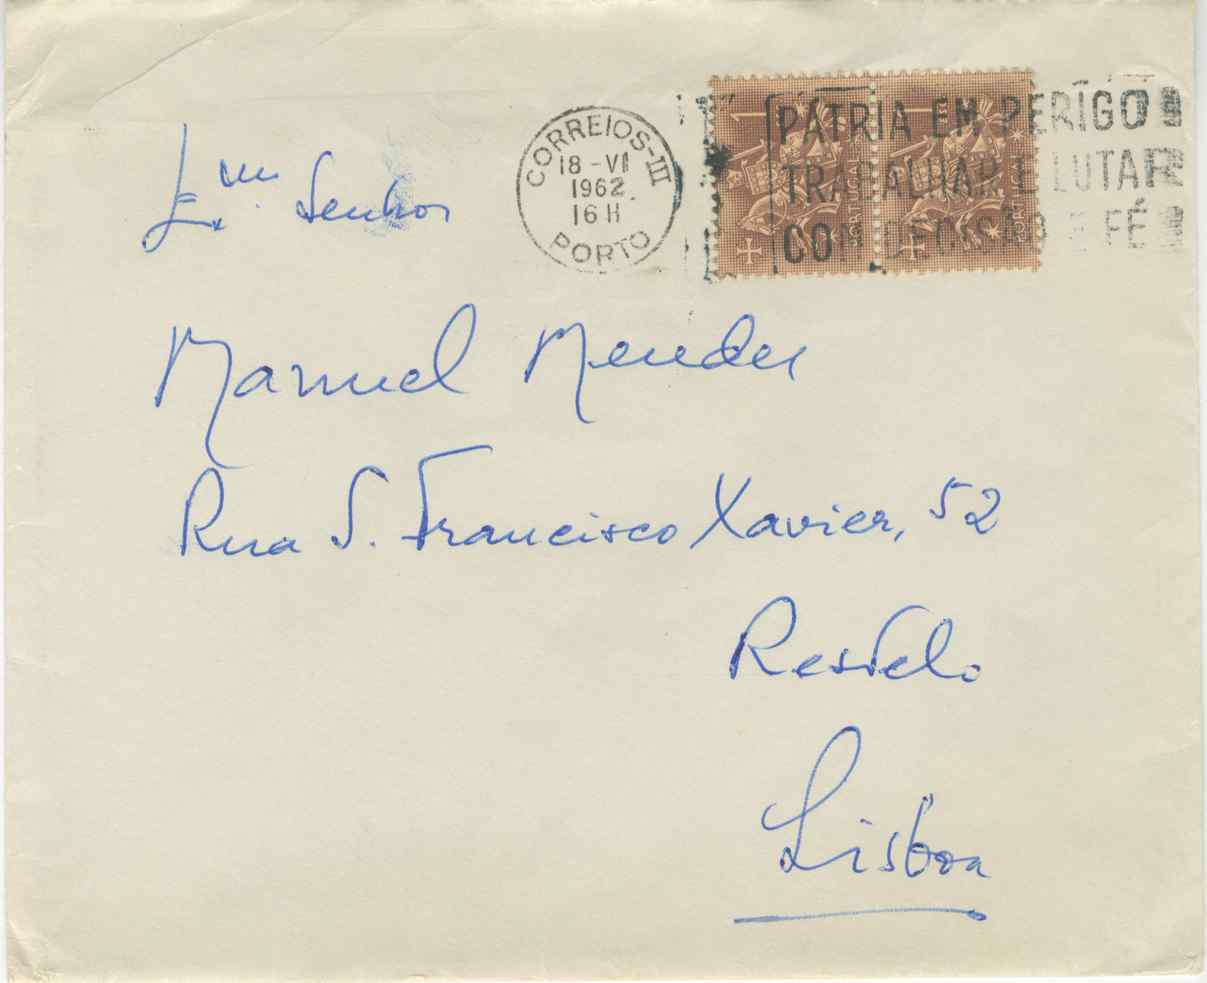 CORREIOS-III
18-VI
1962
16 H
PORTO
1
1
PORTUGAL
PORTUGAL
PÁTRIA EM PERIGO
TRABALHAR E LUTAR
COM DECISÃO E FÉ
Exmo. Senhor
Manuel Mendes
Rua S. Francisco Xavier, 52
Restelo
Lisboa